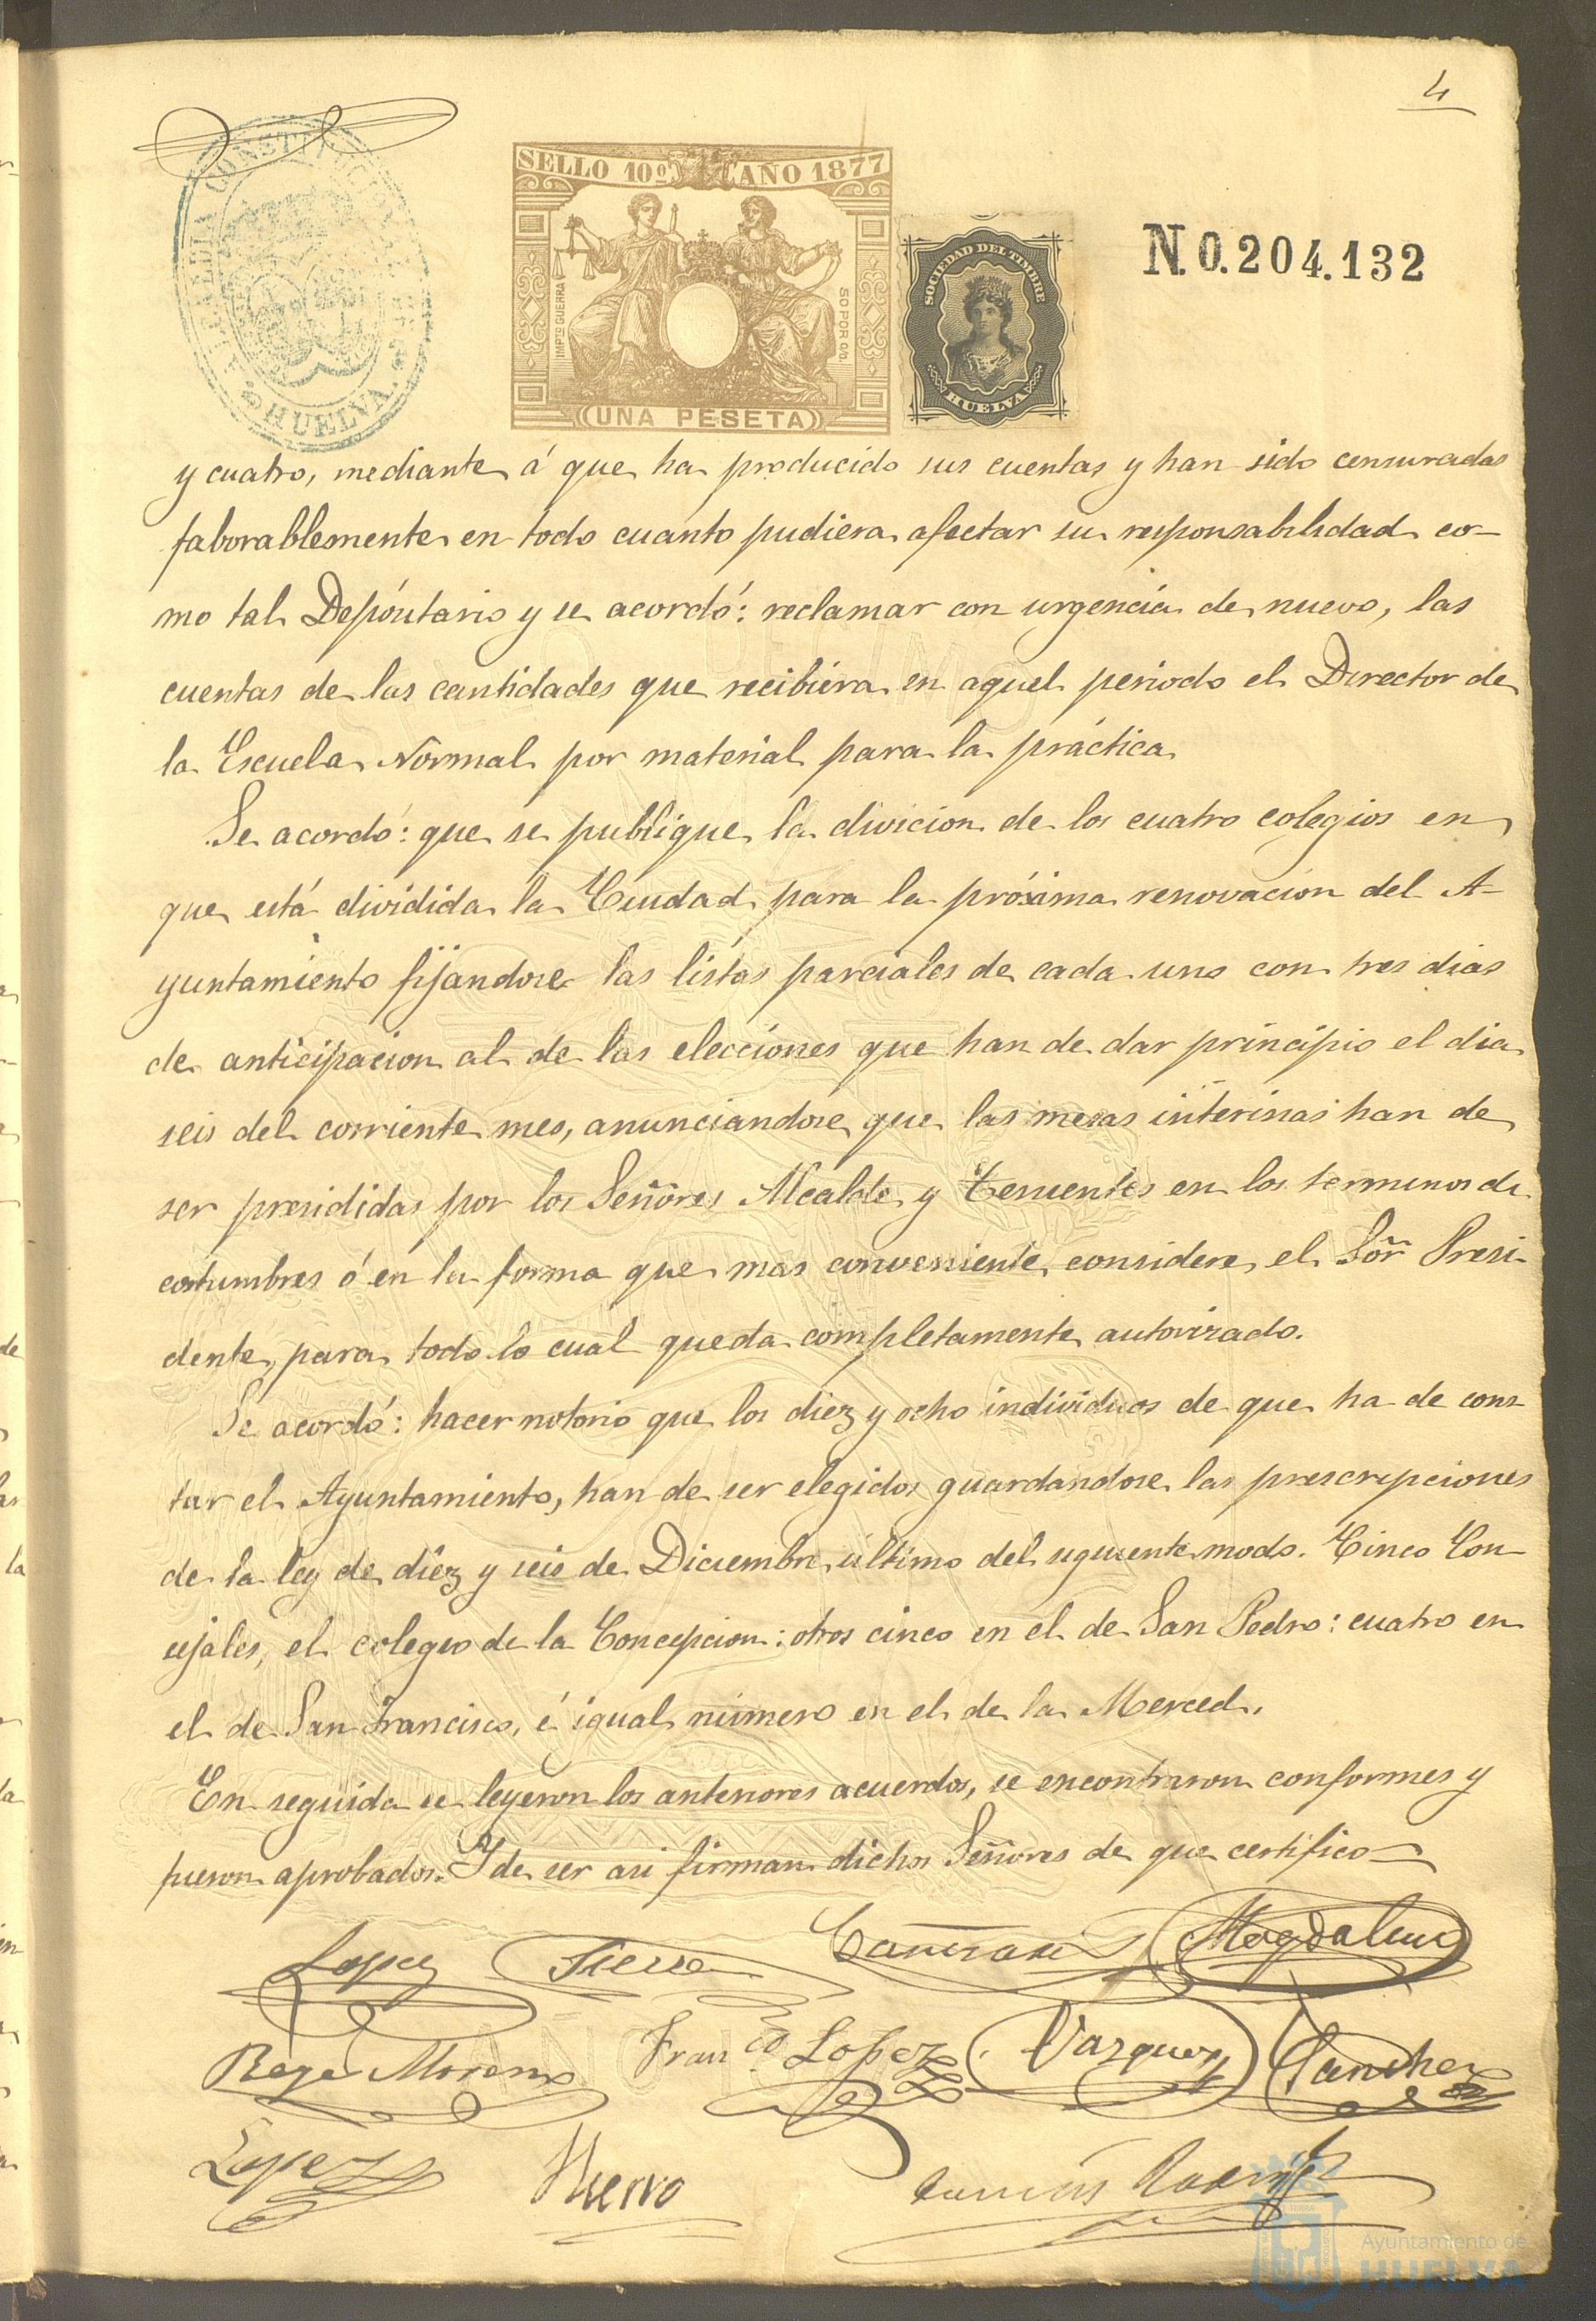 4
ALCALDIA CONSTITUCIONAL DE HUELVA
SELLO 10º AÑO 1877
IMPTO GUERRA
50 POR 0/0
UNA PESETA
SOCIEDAD DEL TIMBRE
HUELVA
N.0.204.132
y cuatro, mediante á que ha producido sus cuentas y han sido censuradas
faborablemente en todo cuanto pudiera afectar su responsabilidad co-
mo tal Depósitario y se acordó: reclamar con urgencia de nuevo, las
cuentas de las cantidades que recibiera en aquel periodo el Director de
la Escuela Normal por material para la práctica
Se acordó: que se publique la divicion de los cuatro colegios en
que está dividida la Ciudad para la próxima renovacion del A-
yuntamiento fijandose las listas parciales de cada uno con tres dias
de anticipacion al de las elecciones que han de dar principio el dia
seis del corriente mes, anunciandose que las mesas interinas han de
ser presididas por los Señores Alcalde y Tenientes en los terminos de
costumbres ó en la forma que mas conveniente considere el Sôr Presi-
dente, para todo lo cual queda completamente autorizado.
Se acordó: hacer notorio que los diez y ocho individuos de que ha de cons-
tar el Ayuntamiento, han de ser elegidos guardandose las prescripciones
de la ley de diez y seis de Diciembre último del siguiente modo. Cinco Con-
sejales, el colegio de la Concepcion: otros cinco en el de San Pedro: cuatro en
el de San Francisco, é igual número en el de la Merced.
En seguida se leyeron los anteriores acuerdos, se encontraron conformes y
fueron aprobados. Y de ser asi firman dichos Señores de que certifico
Lopez Tierra Magdalena
Moreno Franco Lopez Vazquez Sanchez
Lopez Hierro
Ayuntamiento de
HUELVA